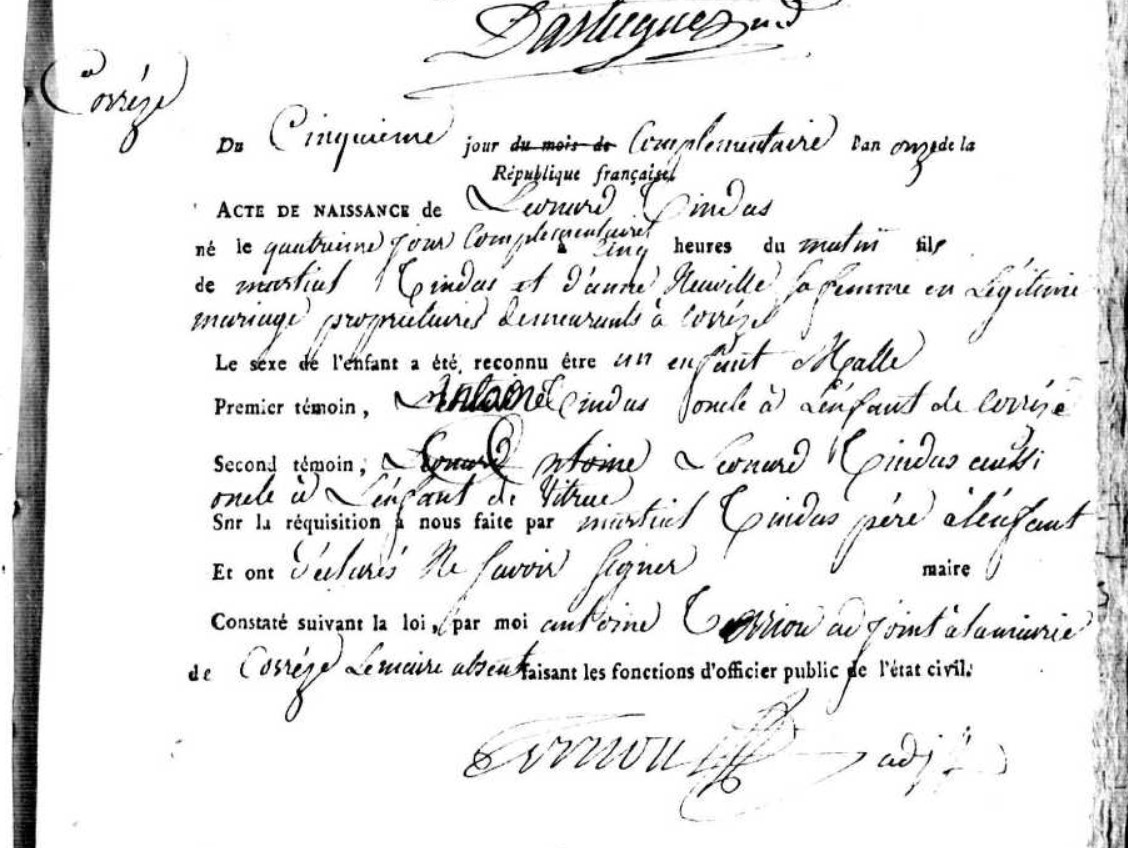 Corréze
Du Cinquieme jour du mois de Complementaire l'an onze de la
République française
ACTE DE NAISSANCE de Leonard Tindas
né le quatrieme jour Complementaire à Cinq heures du matin fils
de martial Tindas et d'anne Neuville sa femme en Légitime
mariage propriétaires demeurants à Corréze
Le sexe de l'enfant a été reconnu être un enfant Malle
Premier témoin, Antoine Tindas oncle à L'enfant de Corréze
Second témoin, Leonard Tindas aussi
oncle à L'enfant de Vitrac
Sur la réquisition à nous faite par martial Tindas père à l'enfant
Et ont déclarés Ne Savoir Signer maire
Constaté suivant la loi, par moi antoine Terriou adjoint à la mairie
de Corréze Le maire absent faisant les fonctions d'officier public de l'état civil.
Terriou adj